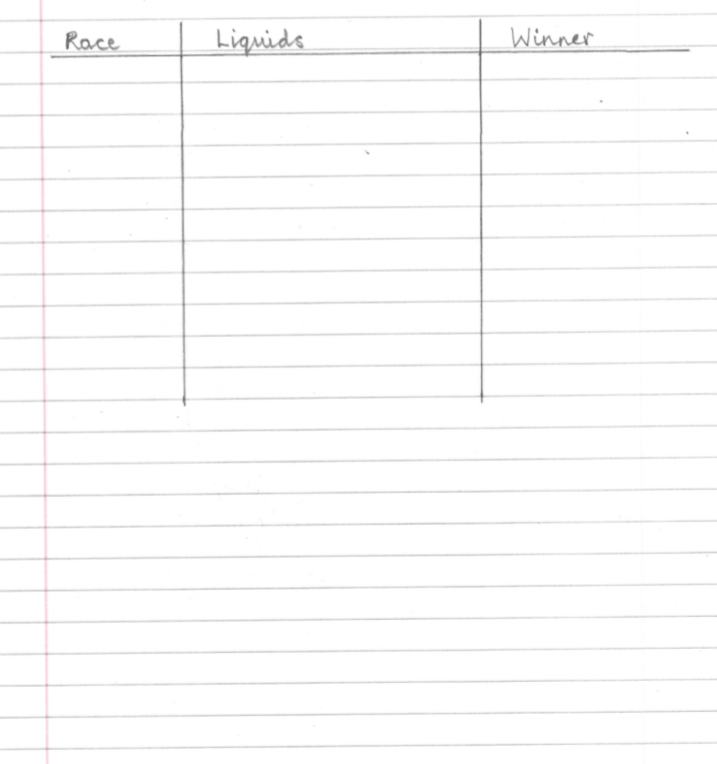 Race Liquids Winner